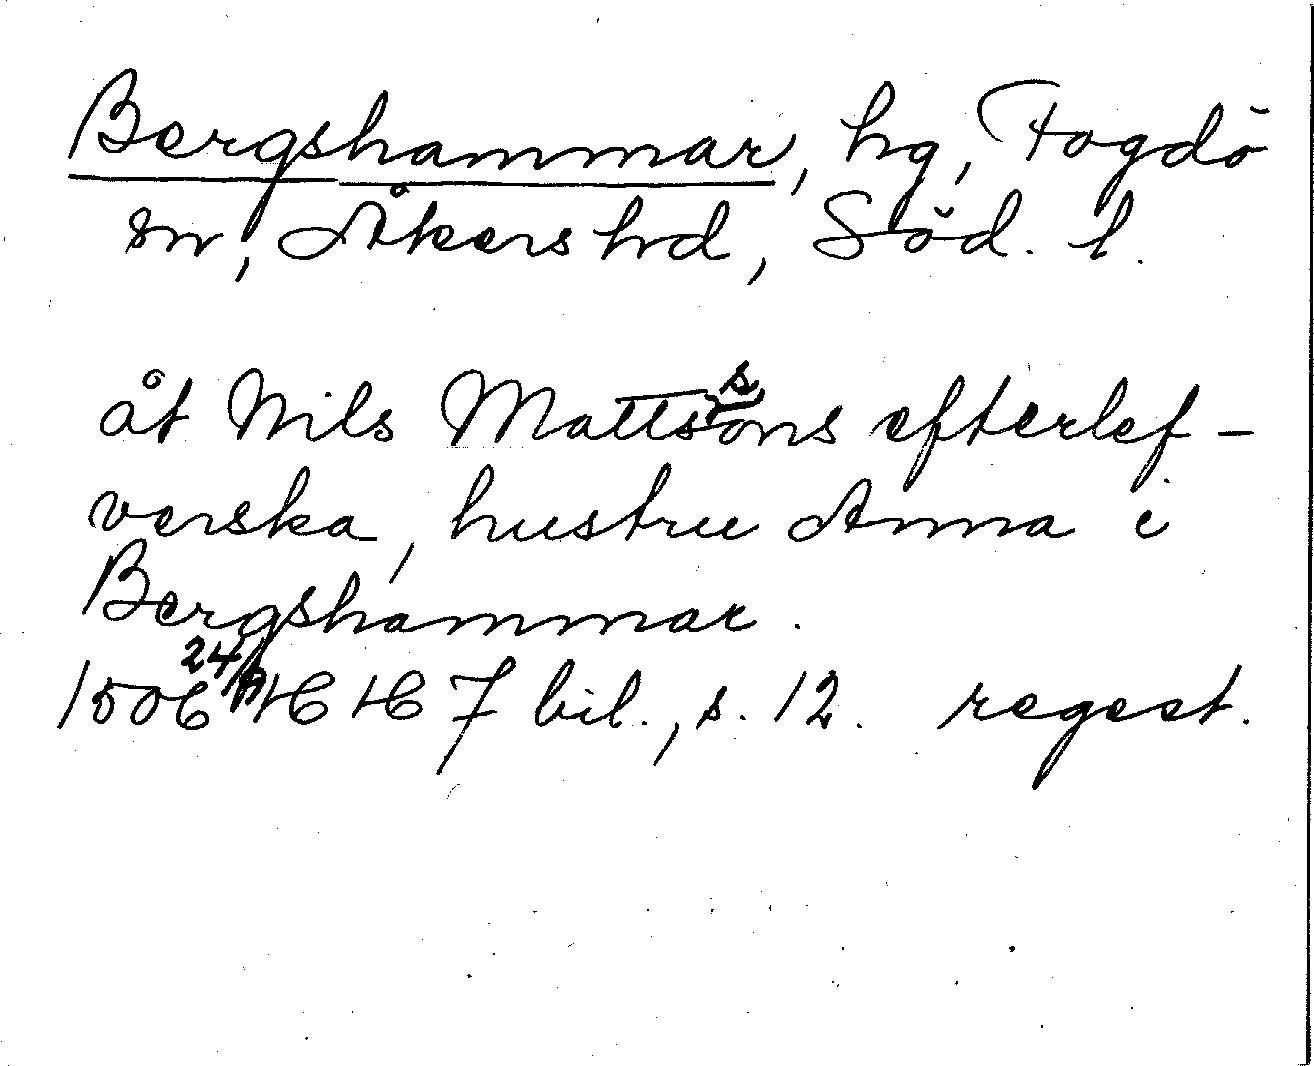 Bergshammar, hg, Fogdö
sn, Åkers hd, Söd. l.
åt Nils Mattssons efterlef-
verska, hustru Anna i
Bergshammar.
1506 24/ HH 7 bil., s. 12. regest.